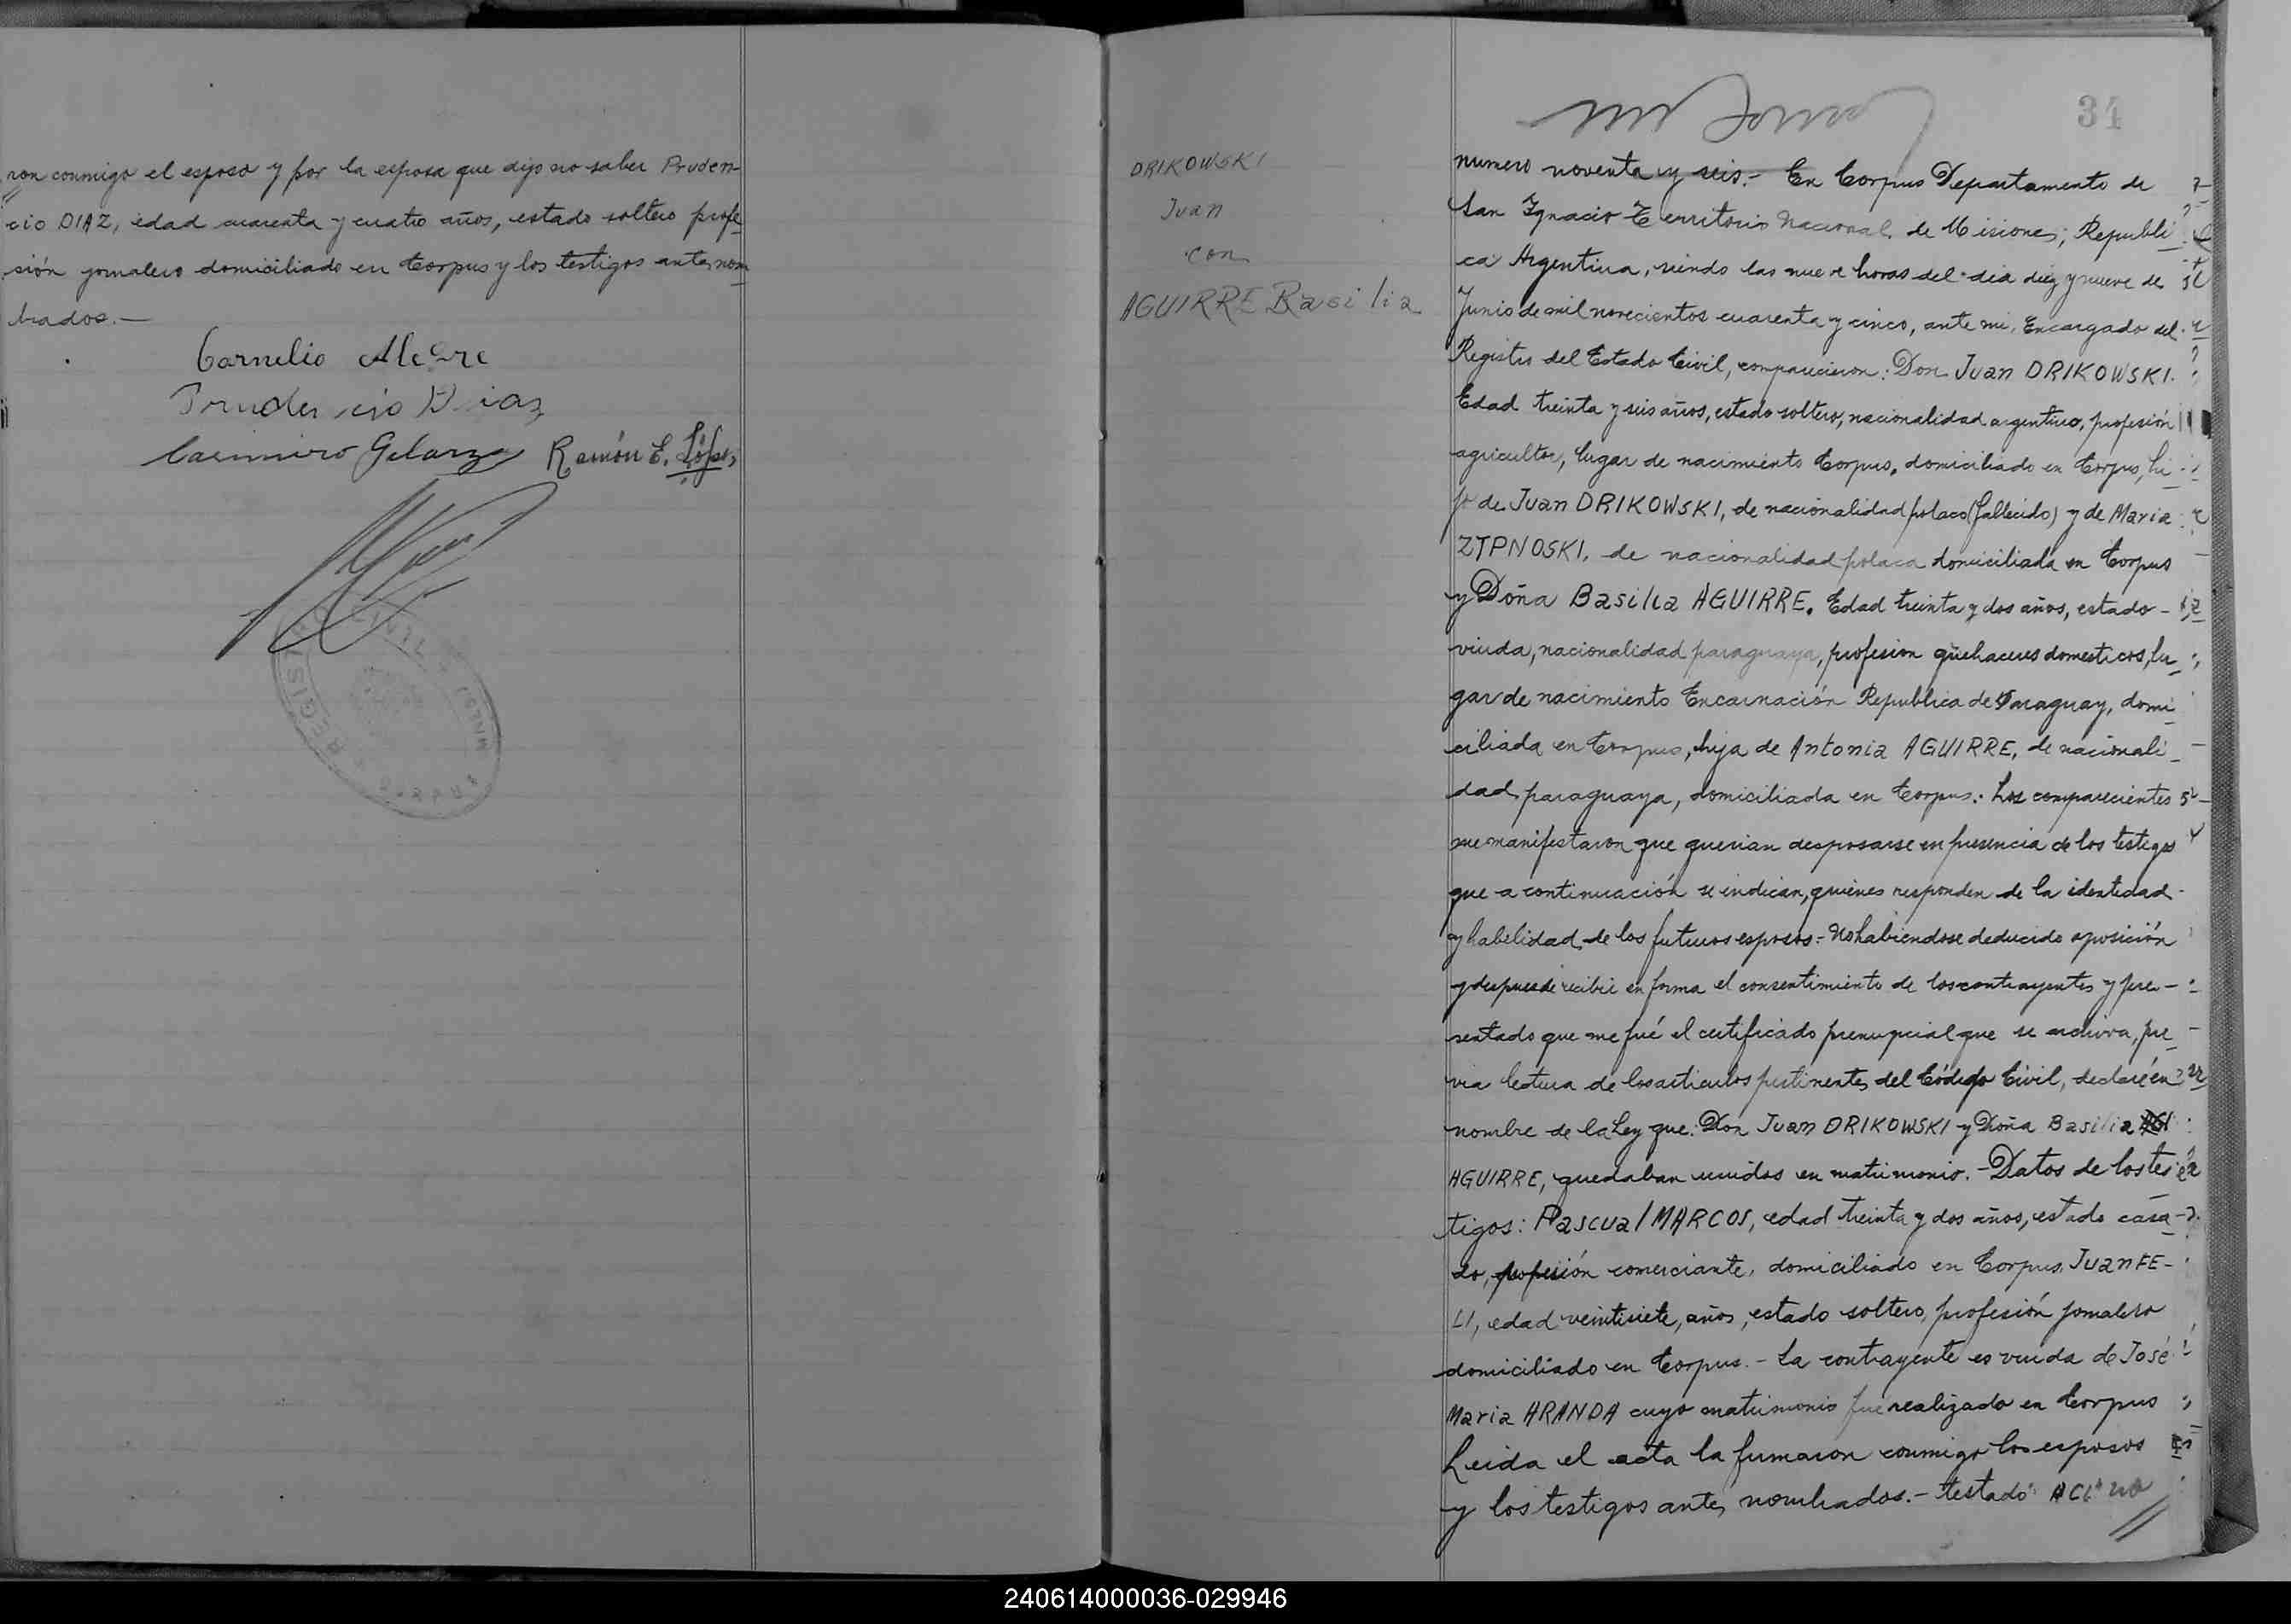 ron conmigo el esposo y por la esposa que dijo no saber Pruden-
cio DIAZ, edad cuarenta y cuatro años, estado soltero profe
sión jornalero domiciliado en Corpus y los testigos antes nom
brados.—
Cornelio Alegre
Prudencio Diaz
Casimiro Gelarza Ramón E. López
REGIS
34
DRIKOWSKI
Juan
con
AGUIRRE Basilia
numero noventa y seis.- En Corpus Departamento de
San Ignacio Territorio Nacional de Misiones; Republi
ca Argentina, siendo las nueve horas del dia diez y nueve de
Junio de mil novecientos cuarenta y cinco, ante mi, Encargado del
Registro del Estado Civil, comparecieron: Don Juan DRIKOWSKI.
Edad treinta y seis años, estado soltero, nacionalidad argentino, profesión
agricultor, lugar de nacimiento Corpus, domiciliado en Corpus, hi
jo de Juan DRIKOWSKI, de nacionalidad polaco (fallecido) y de Maria
ZTPNOSKI, de nacionalidad polaca domiciliada en Corpus
y Doña Basilia AGUIRRE. Edad treinta y dos años, estado -
viuda, nacionalidad paraguaya, profesion quehaceres domesticos, lu
gar de nacimiento Encarnación Republica de Paraguay, domi
ciliada en Corpus, hija de Antonia AGUIRRE, de nacionali
dad paraguaya, domiciliada en Corpus.- Los comparecientes
me manifestaron que querian desposarse en presencia de los testigos
que a continuación se indican, quienes responden de la identidad
y habilidad de los futuros esposos.- No habiendose deducido oposición
y despues de recibir en forma el consentimiento de los contrayentes y pre-
sentado que me fué el certificado prenupcial que se archiva, pre
via lectura de los articulos pertinentes del Código Civil, declaré en
nombre de la Ley que: Don Juan DRIKOWSKI y Doña Basilia
AGUIRRE, quedaban unidos en matrimonio.- Datos de los tes
tigos: Pascual MARCOS, edad treinta y dos años, estado casa
do, profesión comerciante, domiciliado en Corpus, Juan FE-
LI, edad veintisiete, años, estado soltero, profesión jornalero
domiciliado en Corpus.- La contrayente es viuda de José
Maria ARANDA cuyo matrimonio fue realizado en Corpus
Leida el acta la firmaron conmigo los esposos
y los testigos antes nombrados.- testado
240614000036-029946